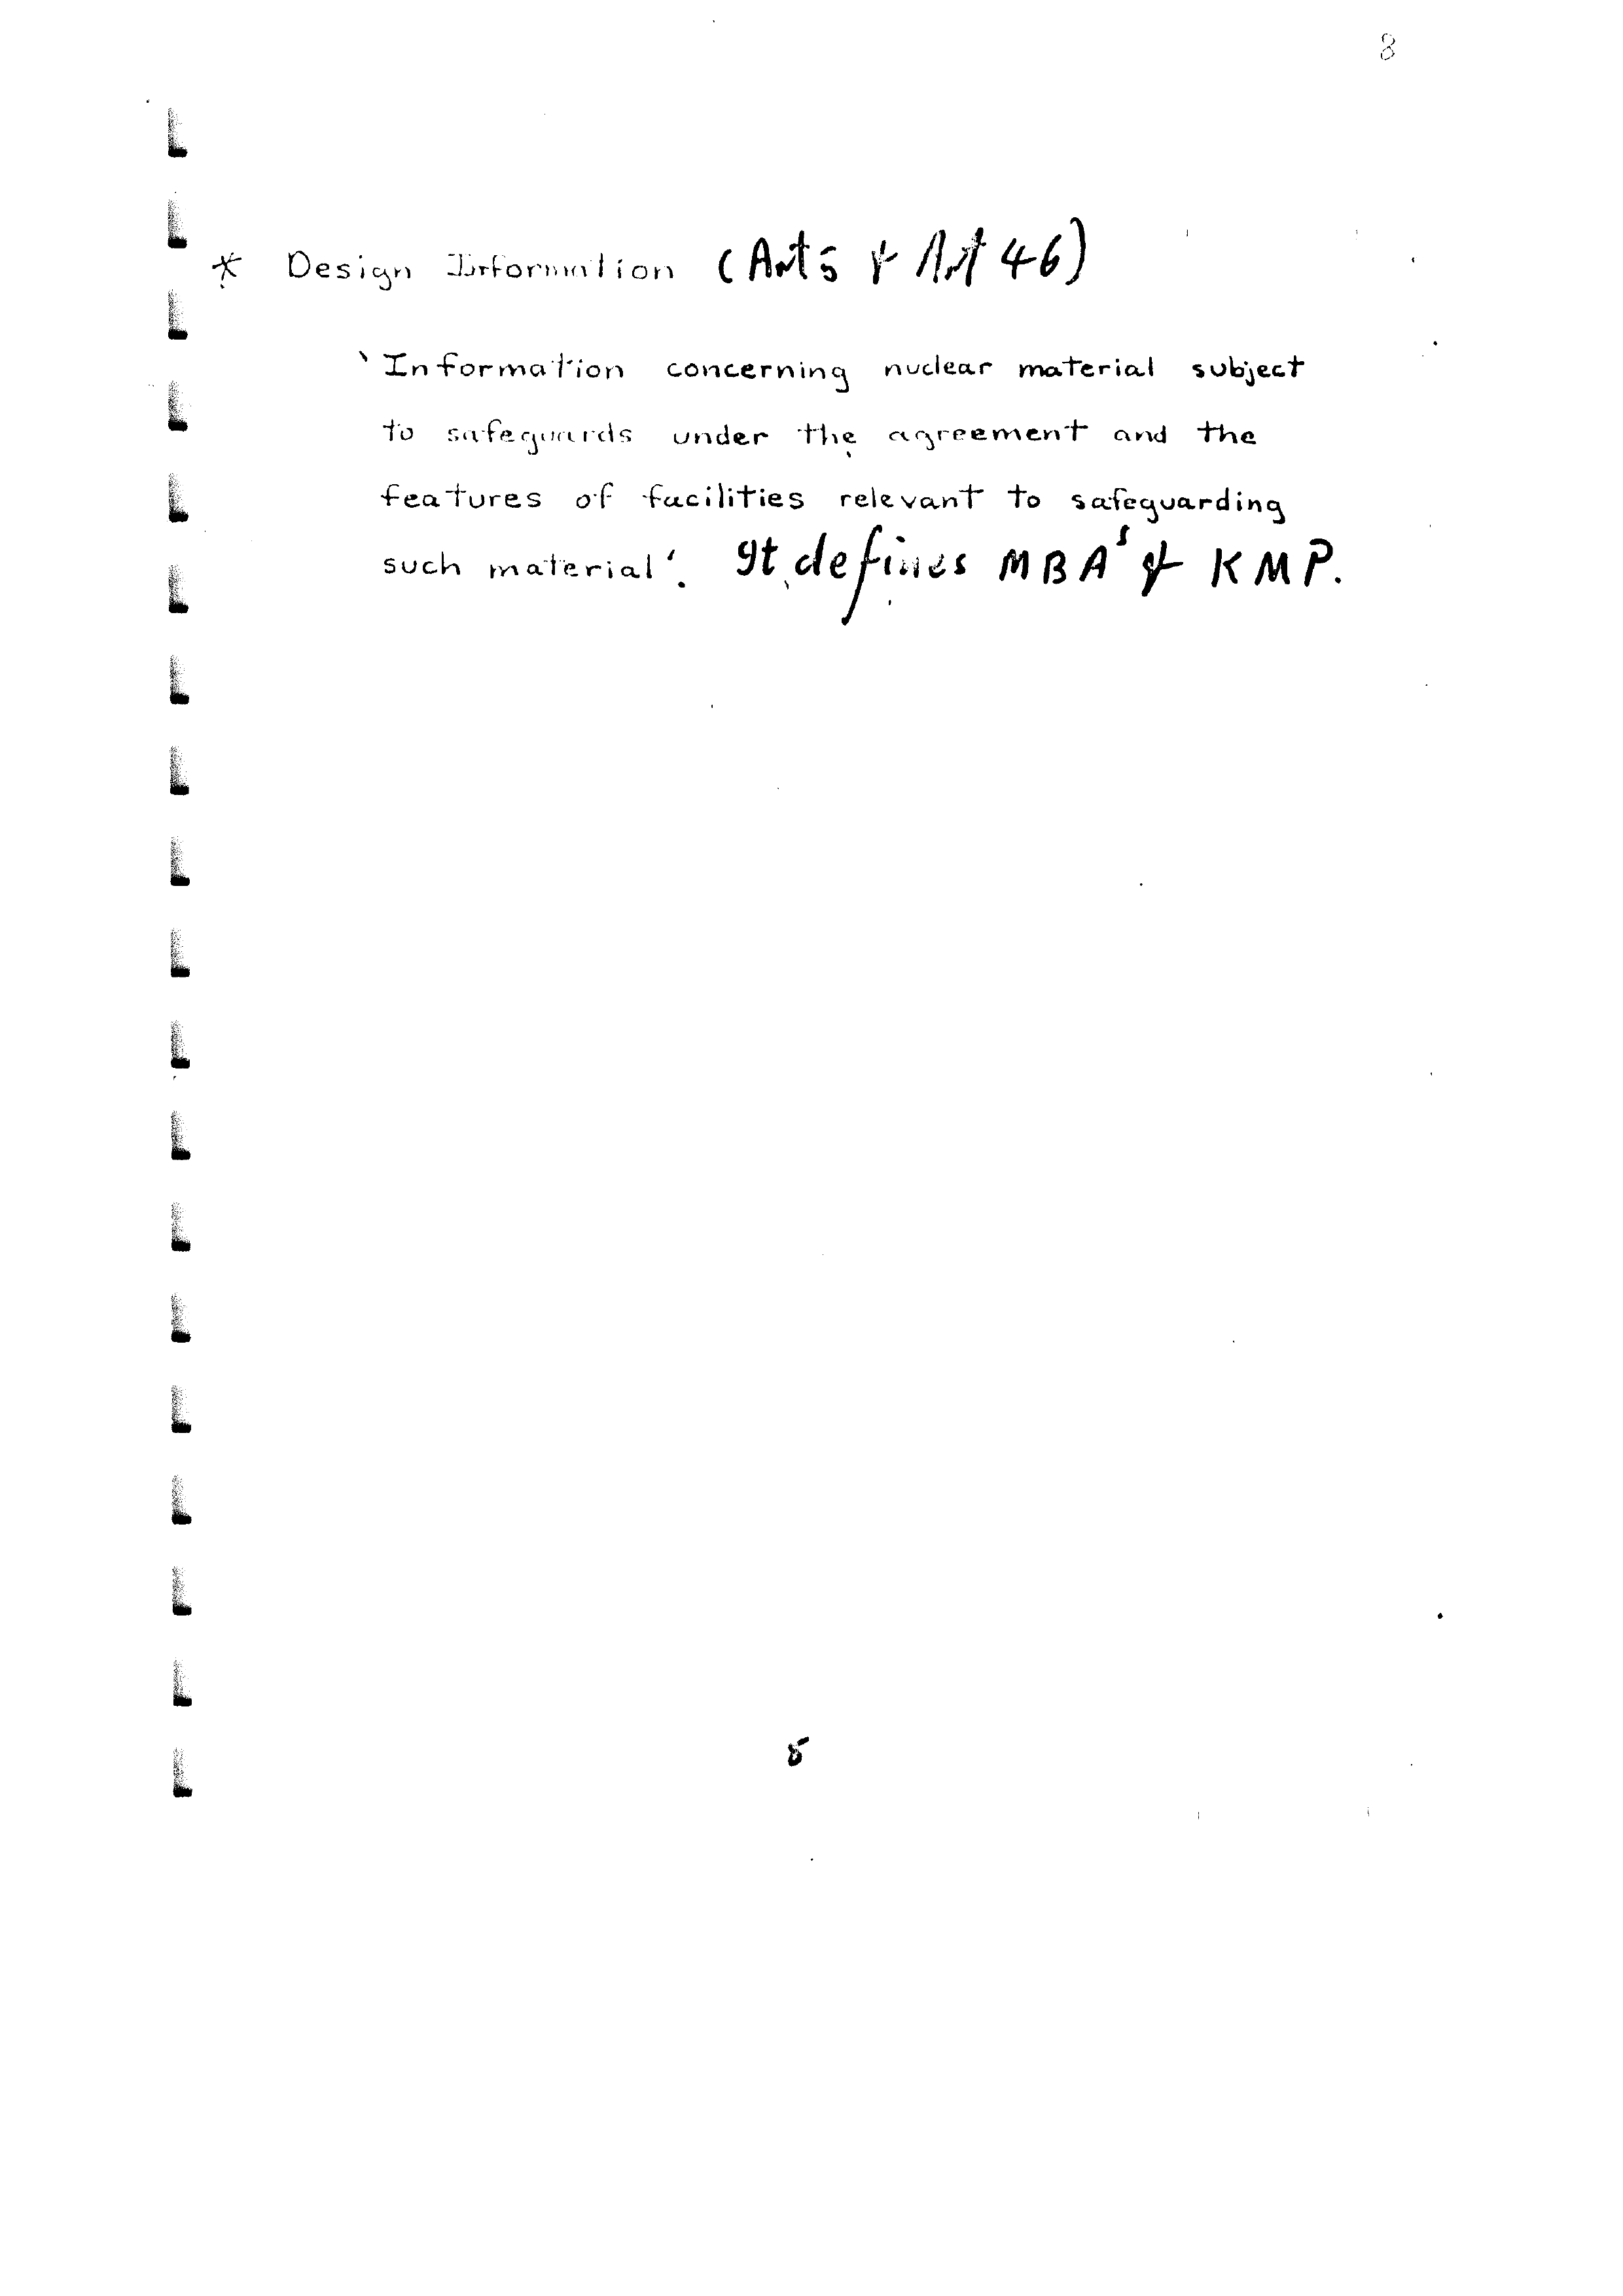 8
* Design Information (Art 5 & Art 46)
‵Information concerning nuclear material subject
to safeguards under the agreement and the
features of facilities relevant to safeguarding
such material′. It defines MBA's & KMP.